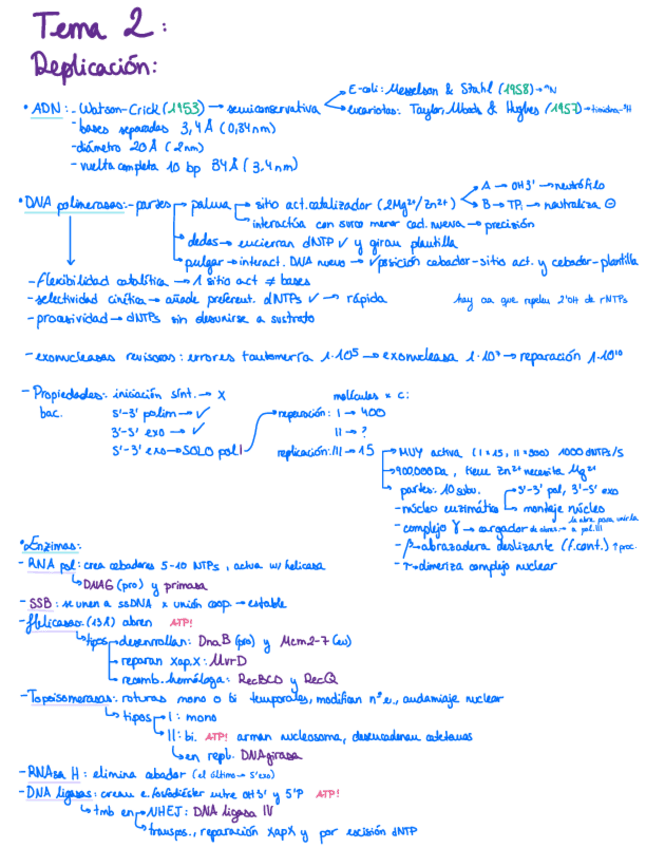 Tema 2:
Replicación:
• ADN: - Watson-Crick (1953) → semiconservativa → E-coli: Messelson & Stahl (1958) → ¹⁵N
→ eucariotas: Taylor, Woods & Hughes (1957) → timidina-³H
- bases separadas 3,4 Å (0,34nm)
- diámetro 20Å (2nm)
- vuelta completa 10 bp 34Å (3,4nm)
• DNA polimerasas: - partes → palma → sitio act. catalizador (2Mg²⁺/Zn²⁺) → A → OH3' → neutrófilo
→ B → TPi → neutraliza ⊖
→ interactúa con surco menor cad. nueva → precisión
→ dedos → encierran dNTP ✓ y giran plantilla
→ pulgar → interact. DNA nuevo → ✓posición cebador-sitio act. y cebador-plantilla
- flexibilidad catalítica → 1 sitio act ≠ bases
- selectividad cinética → añade preferent. dNTPs ✓ → rápida
hay aa que repelen 2'OH de rNTPs
- procesividad → dNTPs sin desunirse a sustrato
- exonucleasas revisoras: errores tautomería 1·10⁵ → exonucleasa 1·10⁷ → reparación 1·10¹⁰
- Propiedades: iniciación sínt. → X
moléculas x c:
bac.
5'-3' polim → ✓
reparación: I → 400
3'-5' exo → ✓
II → ?
5'-3' exo → SOLO pol I
replicación: III → 15
→ MUY activa (I=15, II=500) 1000 dNTPs/s
→ 900,000Da, tiene Zn²⁺ necesita Mg²⁺
→ partes: 10 subu.
→ 5'-3' pol, 3'-5' exo
- núcleo enzimático → montaje núcleo
- complejo γ → cargador de abraz. → la abre para unirla a pol.III
- β → abrazadera deslizante (f.cont.) ↑proc.
- τ → dimeriza complejo nuclear
• Enzimas:
- RNA pol: crea cebadores 5-10 NTPs, activa w/ helicasa
→ DNAG (pro) y primasa
- SSB: se unen a ssDNA x unión coop. → estable
- Helicasa: (13Å) abren ATP!
→ tipos → desenrollan: DnaB (pro) y Mcm2-7 (eu)
→ reparan xap.X: UvrD
→ recomb. homóloga: RecBCD y RecQ
- Topoisomerasas: roturas mono o bi temporales, modifican nº e., andamiaje nuclear
→ tipos → I: mono
→ II: bi. ATP! arman nucleosoma, desencadenan catetanos
→ en repl. DNAgirasa
- RNAsa H: elimina cebador (el último → 5'exo)
- DNA ligasas: crean e. fosfodiéster entre OH3' y 5'P ATP!
→ tmb en → NHEJ: DNA ligasa IV
→ transpos., reparación xapX y por escisión dNTP